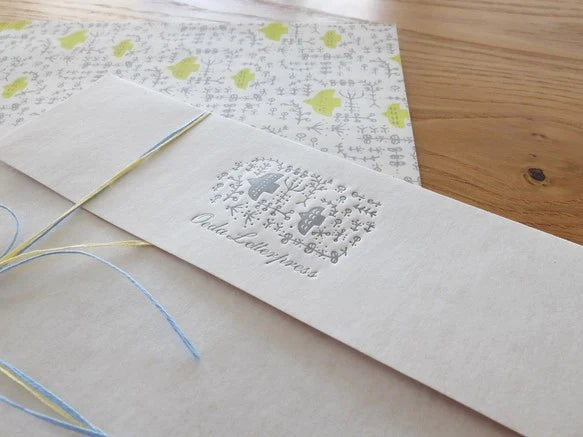 Oeda Letterpress